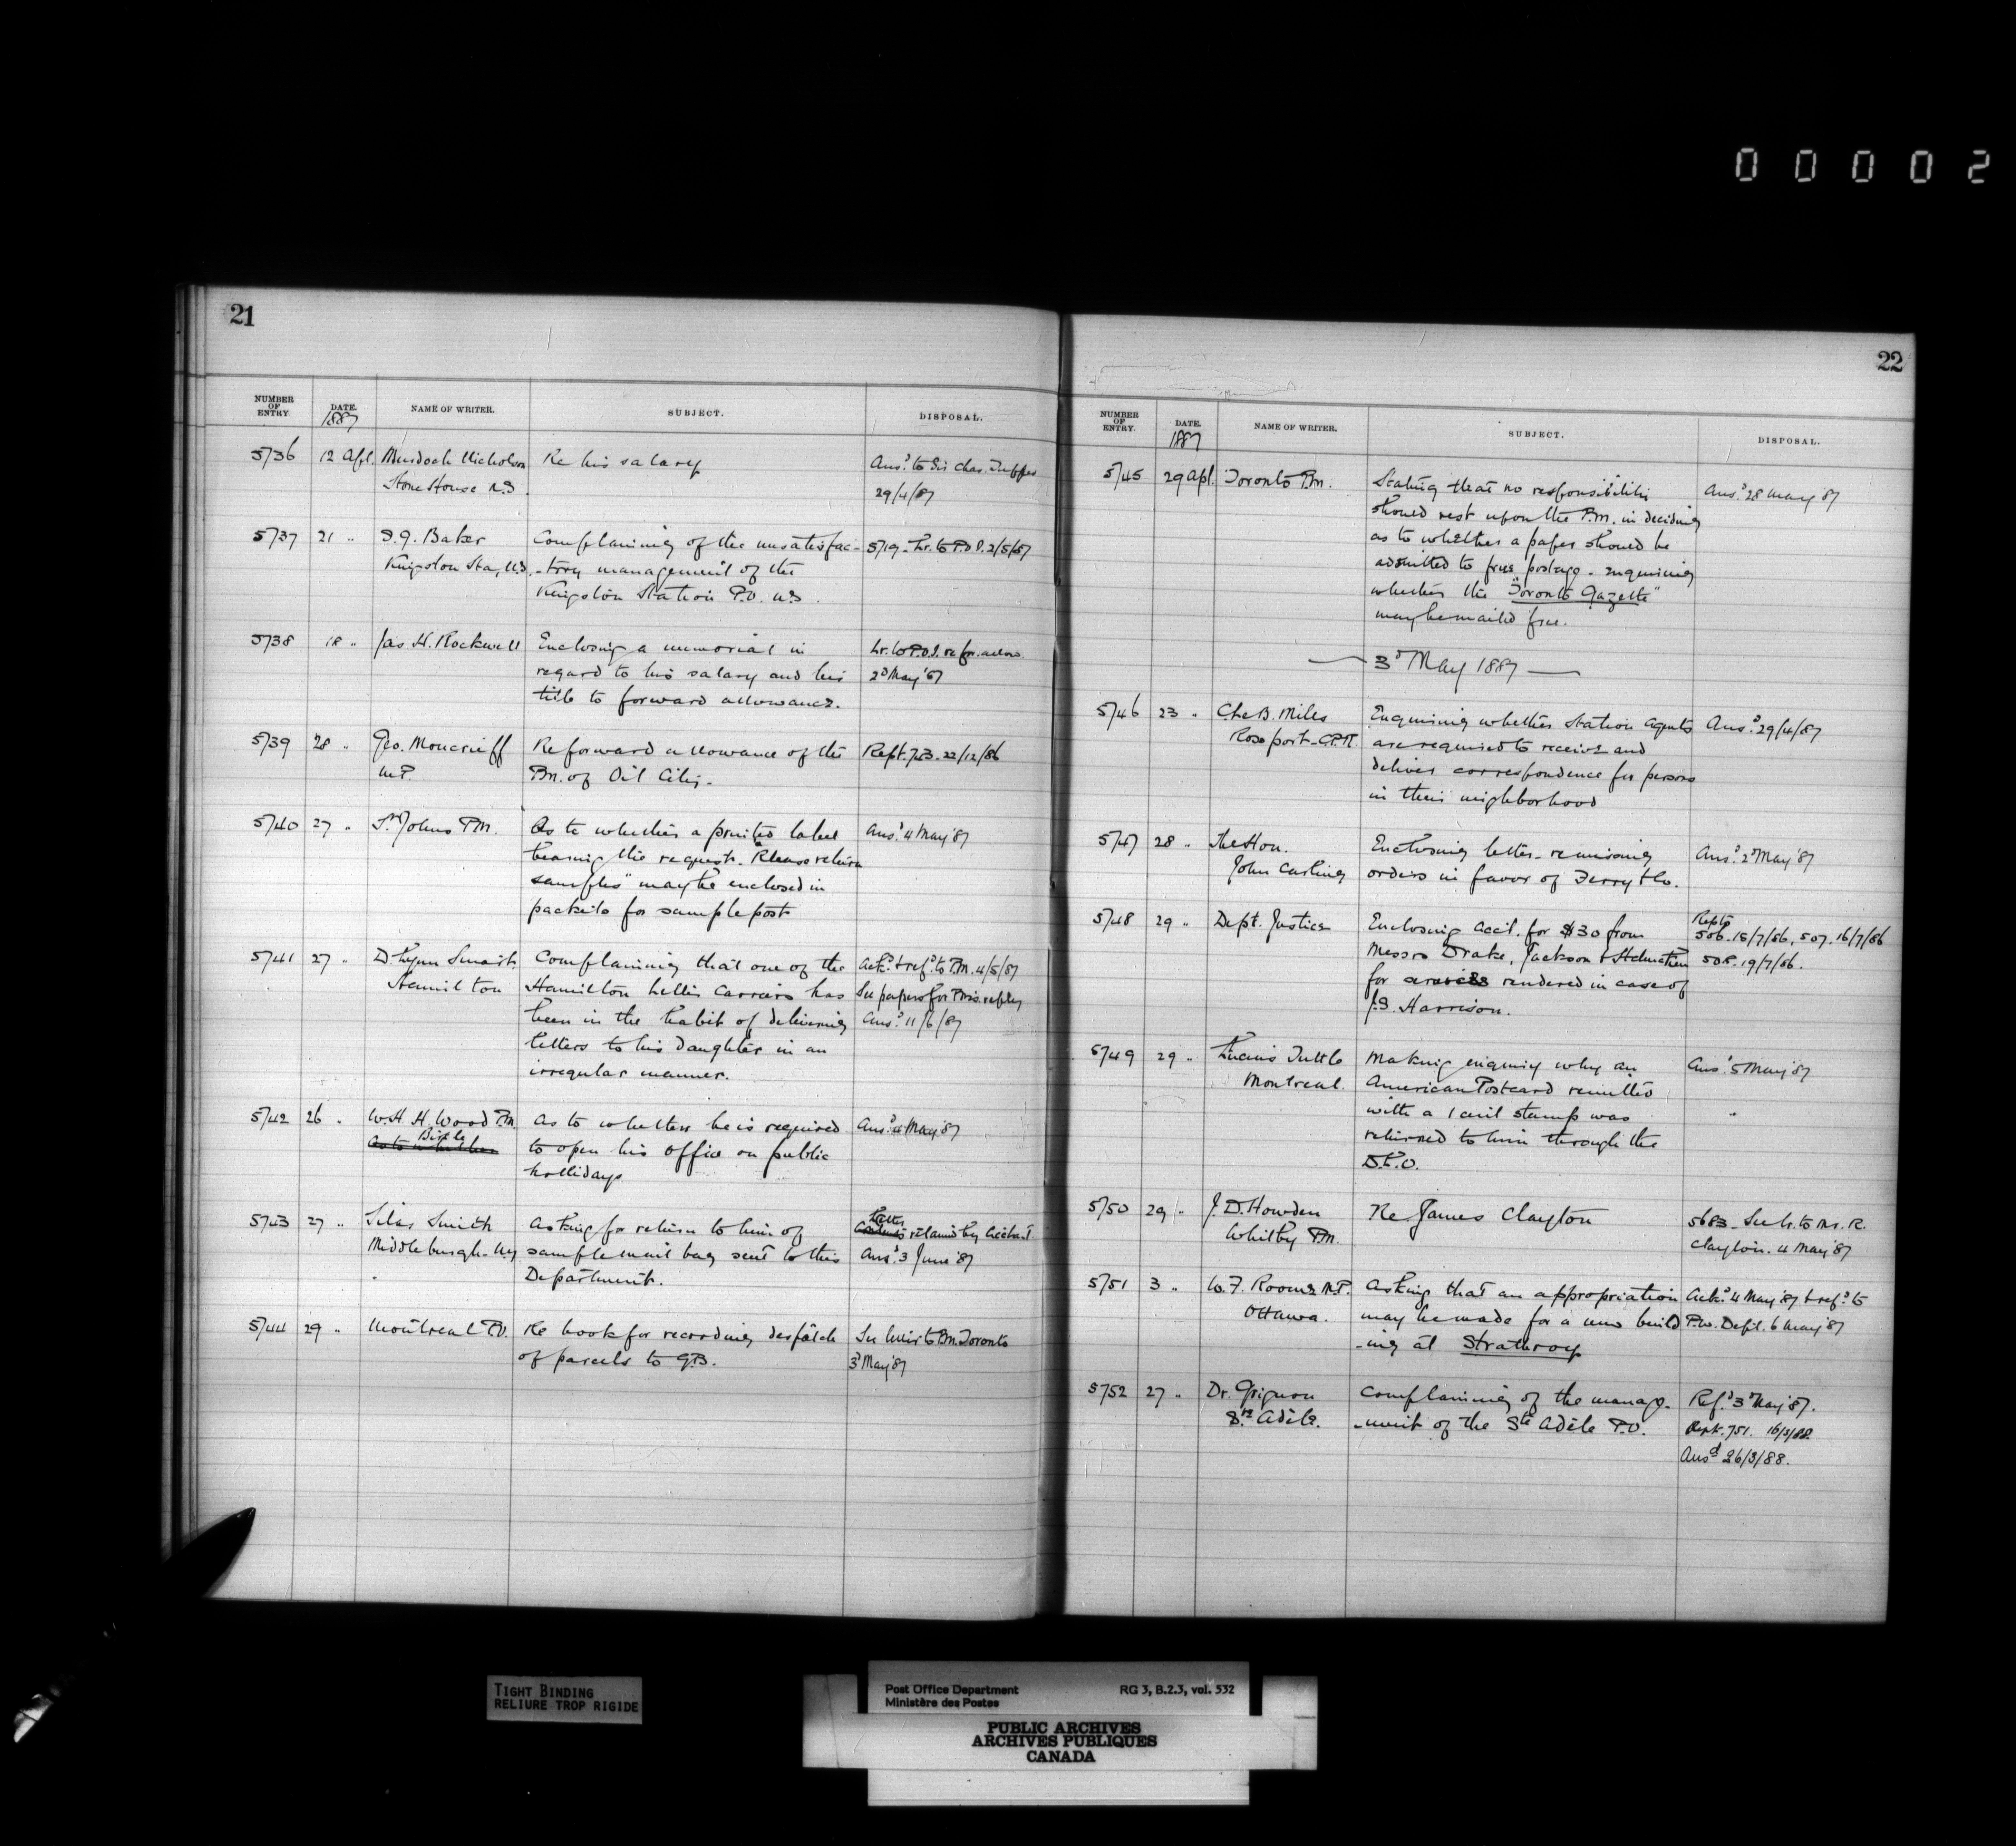 00002
21
NUMBER OF ENTRY
DATE. 1887
NAME OF WRITER.
SUBJECT.
DISPOSAL.
5736 12 Apl. Murdoch Nicholson Re his salary Ansd to Sir Chas. Tupper
Stone House N.S. 29/4/87
5737 21 " Baker Complaining of the unsatisfac- 5719 - Lr. to P.O.I. 2/5/87
Kingston Sta, N.S. -tory management of the
Kingston Station P.O. N.S.
5738 18 " Jas H. Rockwell Enclosing a memorial in Lr. to P.O.I. re for. allow.
regard to his salary and his 2d May '87
title to forward allowance.
5739 28 " Geo. Moncrieff Re forward allowance of the Rept. 743 - 22/12/86
M.P. P.M. of Oil City.
5740 27 " St Johns P.M. As to whether a printed label Ansd 4 May '87
bearing the request - "Please return
samples" may be enclosed in
packets for sample post
5741 27 " D. Smart Complaining that one of the Ackd & refd to P.M. 4/5/87
Hamilton Hamilton Letter Carriers has See papers for P.M's reply
been in the habit of delivering Ansd 11/6/87
letters to his daughter in an
irregular manner.
5742 26 " W. H. H. Wood P.M. As to whether he is required Ansd 4 May '87
Birtle
As to whether to open his office on public
hollidays
5743 27 " Silas Smith Asking for return to him of Letter retained by Acctant
Middleburgh - N.Y. sample mail bag sent to this Ansd 3 June '87
Department.
5744 29 " Montreal P.O. Re book for recording despatch See letter to P.M. Toronto
of parcels to G.B. 3d May '87
22
NUMBER OF ENTRY.
DATE. 1887
NAME OF WRITER.
SUBJECT.
DISPOSAL.
5745 29 Apl. Toronto P.M. Stating that no responsibility Ansd 28 May '87
should rest upon the P.M. in deciding
as to whether a paper should be
admitted to free postage - enquiring
whether the "Toronto Gazette"
may be mailed free.
3d May 1887
5746 23 " B. Miles Enquiring whether Station Agents Ansd 29/4/87
Rossport - C.P.R. are required to receive and
deliver correspondence for persons
in their neighborhood
5747 28 " The Hon. Enclosing letter - Ansd 2d May '87
John Carling orders in favor of Ferry & Co.
5748 29 " Dept. Justice Enclosing acct. for $30 from Repts 506 - 15/7/86, 507 - 16/7/86
Messrs Drake, Jackson & Helmcken 508 - 19/7/86.
for services rendered in case of
J.S. Harrison.
5749 29 " Lucius Tuttle Making enquiry why an Ansd 5 May '87
Montreal. American Postcard remitted
with a 1 cent stamp was "
returned to him through the
D.L.O.
5750 29 " J. D. Howden Re James Clayton 5683 - See lr. to Mr. R.
Whitby P.M. Clayton. 4 May '87
5751 3 " W. F. Roome M.P. Asking that an appropriation Ackd 4 May '87 & refd to
Ottawa. may be made for a new build P.W. Dept. 6 May '87
-ing at Strathroy
5752 27 " Dr. Grignon Complaining of the manage- Refd 3d May '87.
Ste Adèle. -ment of the Ste Adèle P.O. Rept. 751. 16/3/88.
Ansd 26/3/88.
TIGHT BINDING
RELIURE TROP RIGIDE
Post Office Department RG 3, B.2.3, vol. 532
Ministère des Postes
PUBLIC ARCHIVES
ARCHIVES PUBLIQUES
CANADA